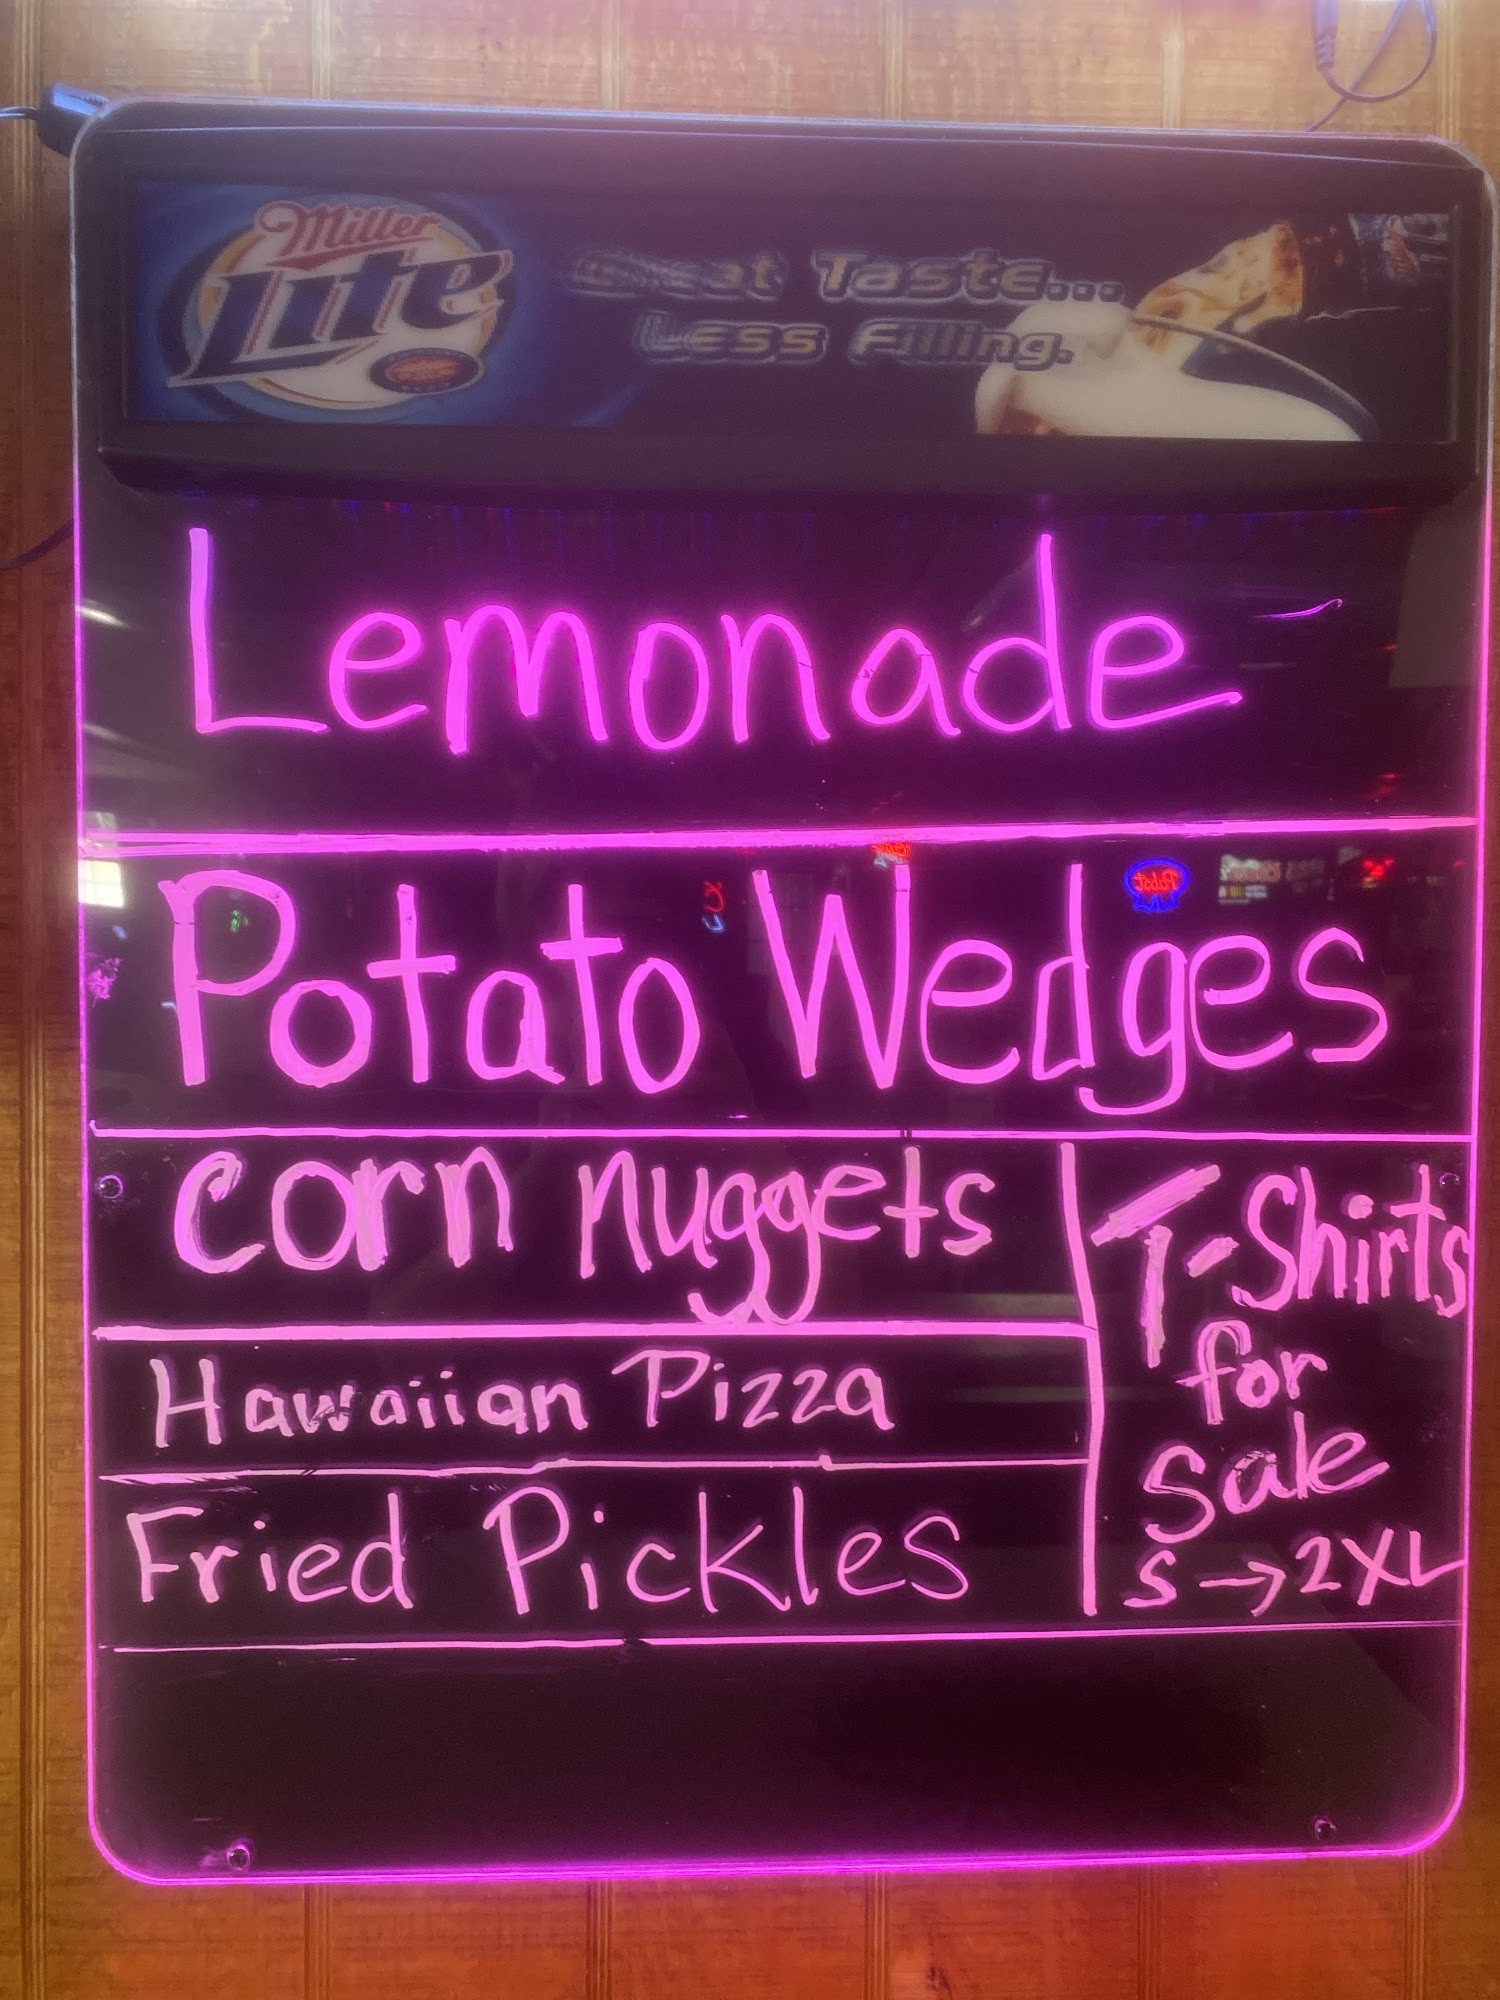 Miller
Lite
Great Taste...
Less Filling.
Lemonade
Potato Wedges
Corn nuggets
Hawaiian Pizza
Fried Pickles
T-Shirts
for
Sale
S → 2XL